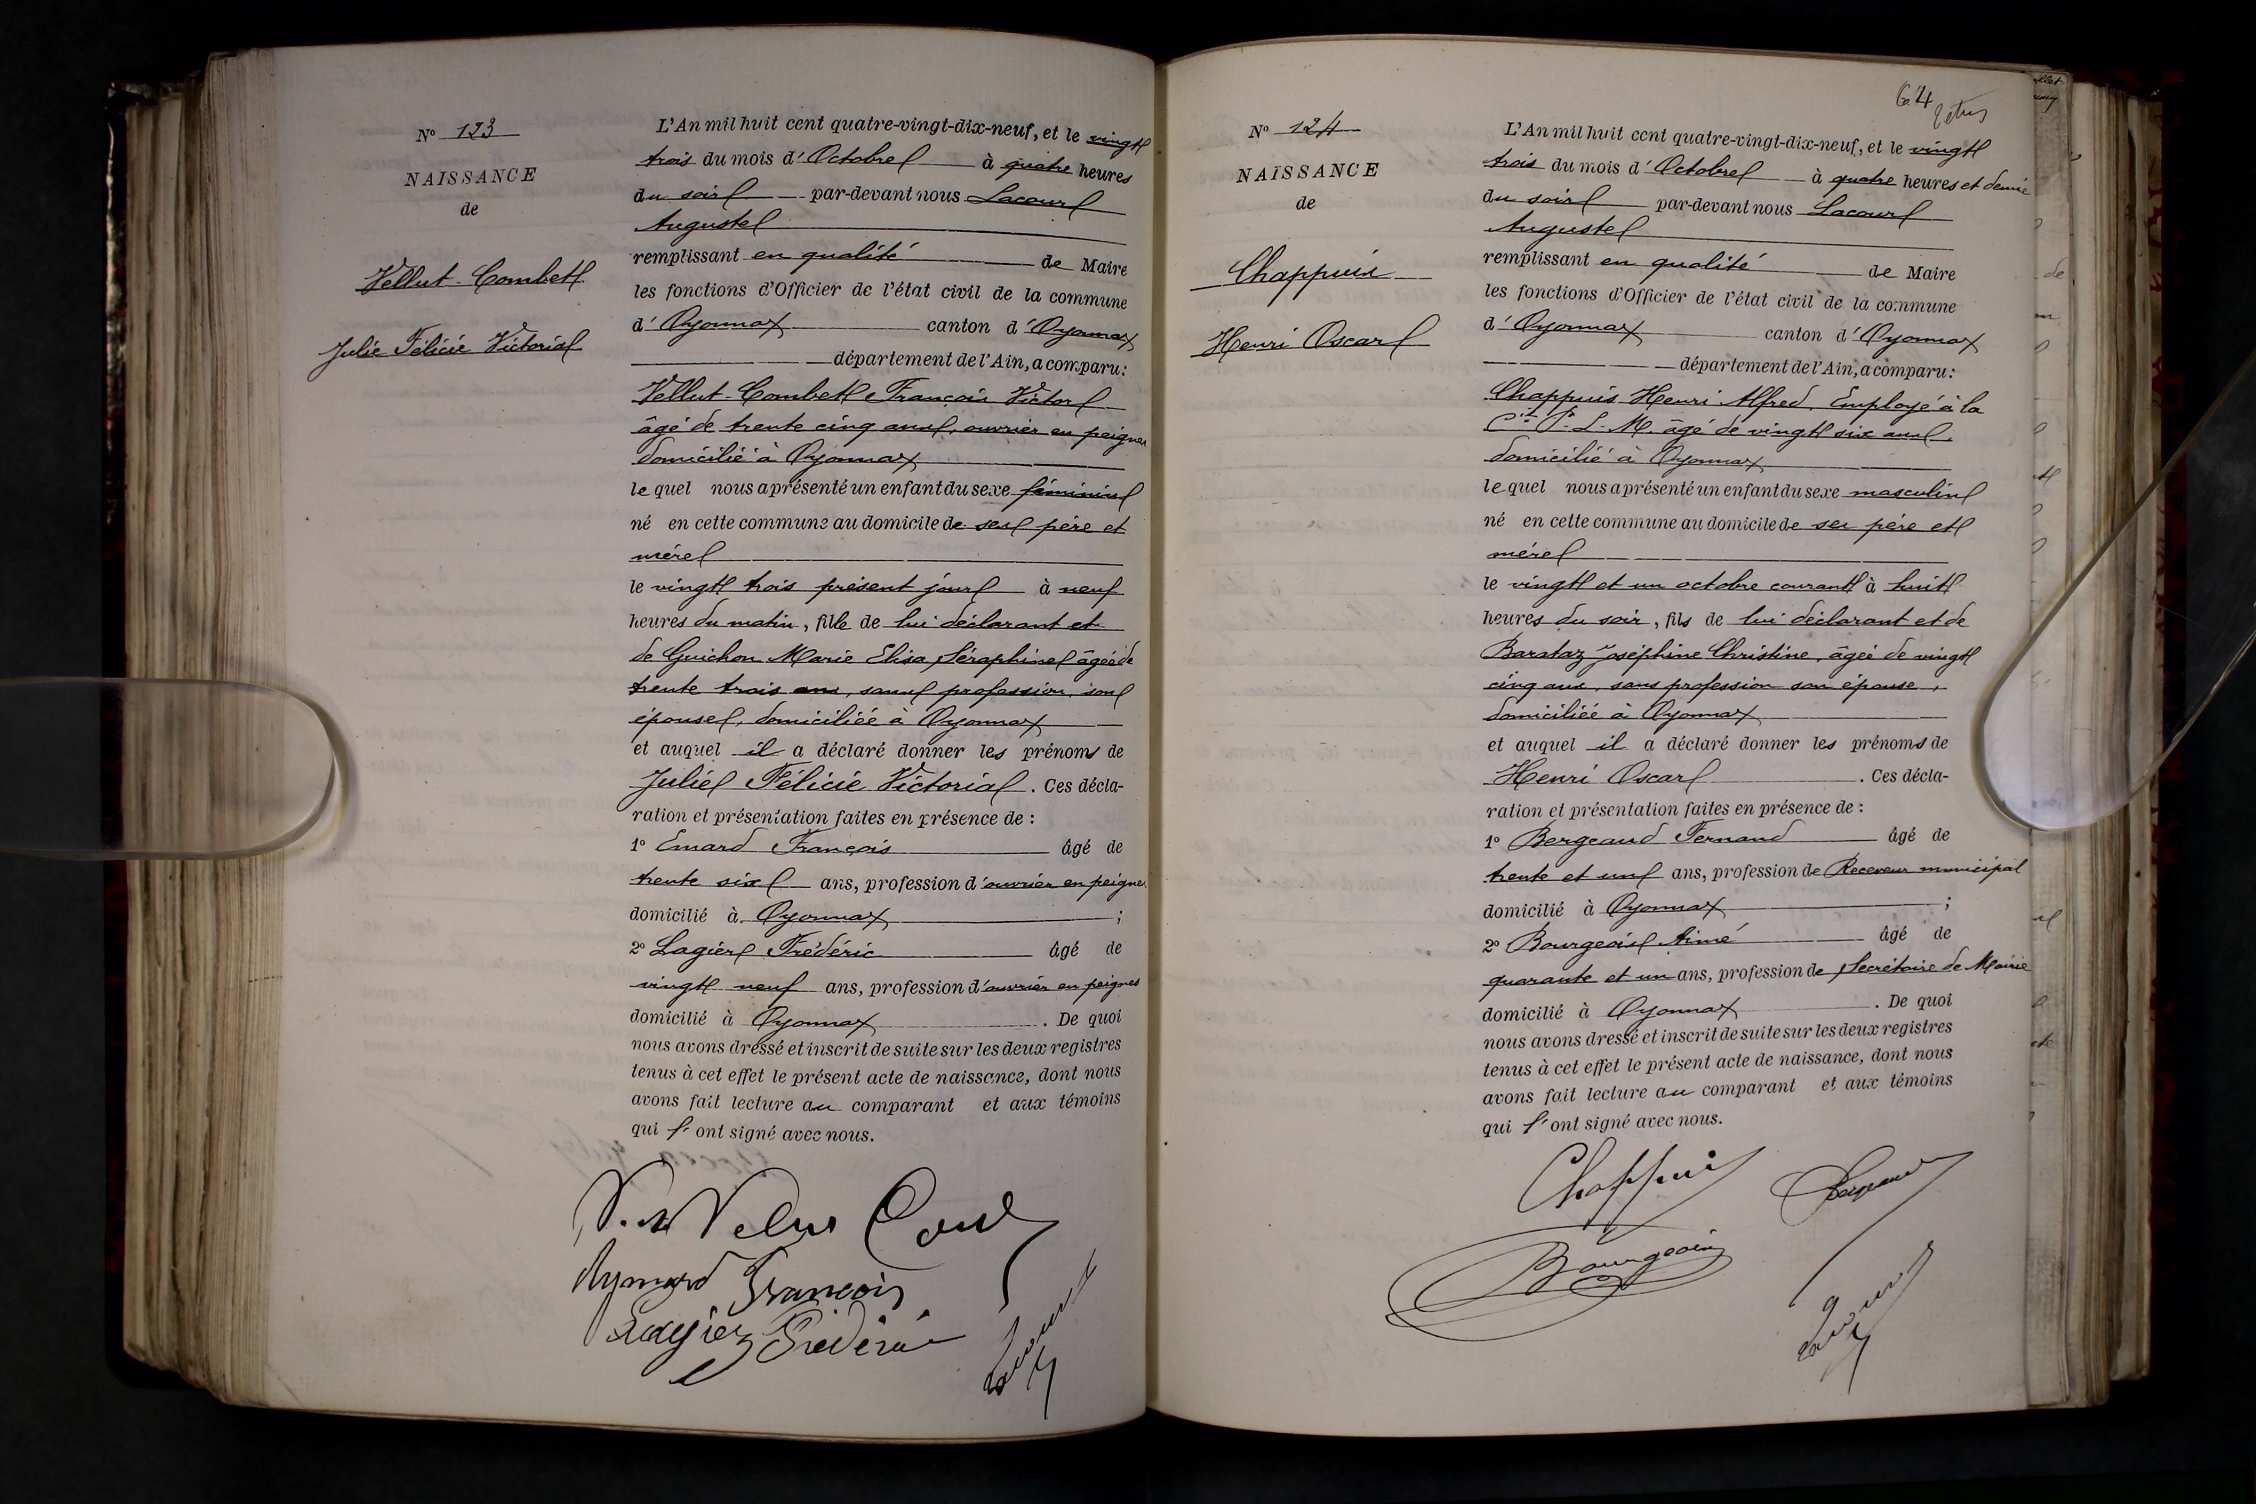 N° 123
NAISSANCE
de
Vellut-Combet
Julie Félicie Victoria
L'An mil huit cent quatre-vingt-dix-neuf, et le vingt
trois du mois d'Octobre à quatre heures
du soir par-devant nous Lacour
Auguste
remplissant en qualité de Maire
les fonctions d'Officier de l'état civil de la commune
d'Oyonnax canton d'Oyonnax
département de l'Ain, a comparu:
Vellut-Combet François Victor
âgé de trente cinq ans, ouvrier en peignes
domicilié à Oyonnax
lequel nous a présenté un enfant du sexe féminin
né en cette commune au domicile de ses père et
mère
le vingt trois présent jour à neuf
heures du matin, fille de lui déclarant et
de Guichon Marie Elisa Séraphine âgée de
trente trois ans, sans profession, son
épouse, domiciliée à Oyonnax
et auquel il a déclaré donner les prénoms de
Julie Félicie Victoria. Ces décla-
ration et présentation faites en présence de :
1° Emard François âgé de
trente six ans, profession d'ouvrier en peignes
domicilié à Oyonnax ;
2° Lagier Frédéric âgé de
vingt neuf ans, profession d'ouvrier en peignes
domicilié à Oyonnax. De quoi
nous avons dressé et inscrit de suite sur les deux registres
tenus à cet effet le présent acte de naissance, dont nous
avons fait lecture au comparant et aux témoins
qui l'ont signé avec nous.
Aymard François
Lagier Frédéric
Lacour
64
N° 124
NAISSANCE
de
Chappuis
Henri Oscar
L'An mil huit cent quatre-vingt-dix-neuf, et le vingt
trois du mois d'Octobre à quatre heures et demie
du soir par-devant nous Lacour
Auguste
remplissant en qualité de Maire
les fonctions d'Officier de l'état civil de la commune
d'Oyonnax canton d'Oyonnax
département de l'Ain, a comparu:
Chappuis Henri Alfred, Employé à la
Cie P. L. M. âgé de vingt six ans,
domicilié à Oyonnax
lequel nous a présenté un enfant du sexe masculin
né en cette commune au domicile de ses père et
mère
le vingt et un octobre courant à huit
heures du soir, fils de lui déclarant et de
Barataz Joséphine Christine, âgée de vingt
cinq ans, sans profession son épouse,
domiciliée à Oyonnax
et auquel il a déclaré donner les prénoms de
Henri Oscar. Ces décla-
ration et présentation faites en présence de :
1° Bergeaud Fernand âgé de
trente et un ans, profession de Receveur municipal
domicilié à Oyonnax ;
2° Bourgeois Aimé âgé de
quarante et un ans, profession de Secrétaire de Mairie
domicilié à Oyonnax. De quoi
nous avons dressé et inscrit de suite sur les deux registres
tenus à cet effet le présent acte de naissance, dont nous
avons fait lecture au comparant et aux témoins
qui l'ont signé avec nous.
Chappuis Bergeaud
Bourgeois
Lacour